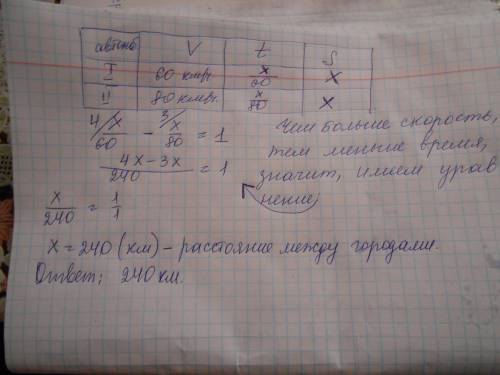 автомоб V t S
I 60 км/ч. x/60 x
II 80 км/ч. x/80 x
4/x/60 - 3/x/80 = 1
4x-3x/240 = 1
x/240 = 1/1
Чем больше скорость,
тем меньше время,
значит, имеем урав
нение;
x = 240 (км) - расстояние между городами.
Ответ: 240 км.